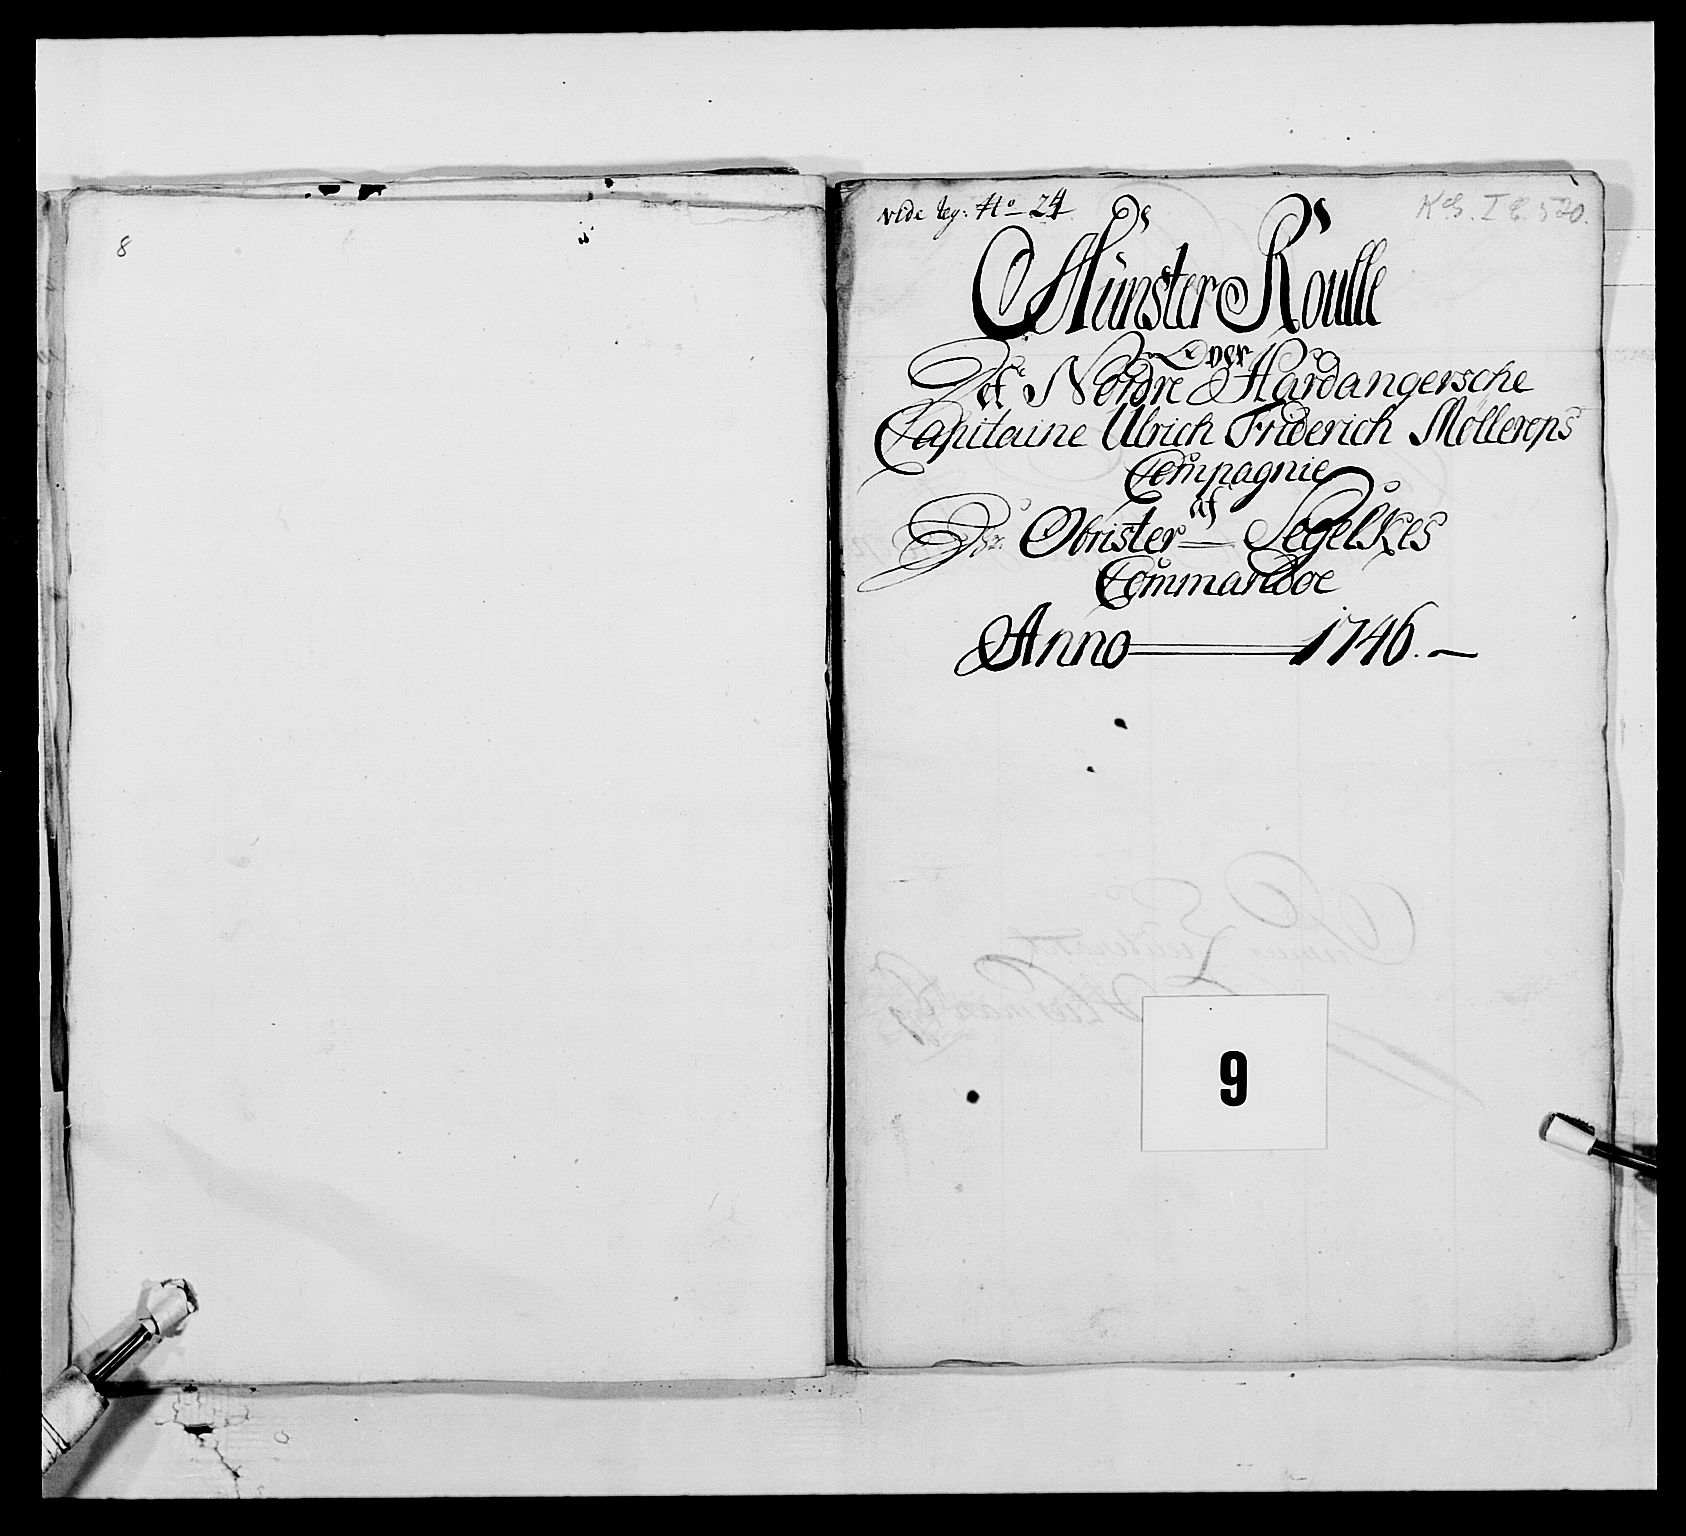 8
vide reg: No 24
Münster Roulle
Over
Det Nordre Hardangersche
Capitaine Ulrich Friderich Möllereps
Compagnie
af
Hr: Obrister Segelkes
Commandoe
Anno 1746.
9